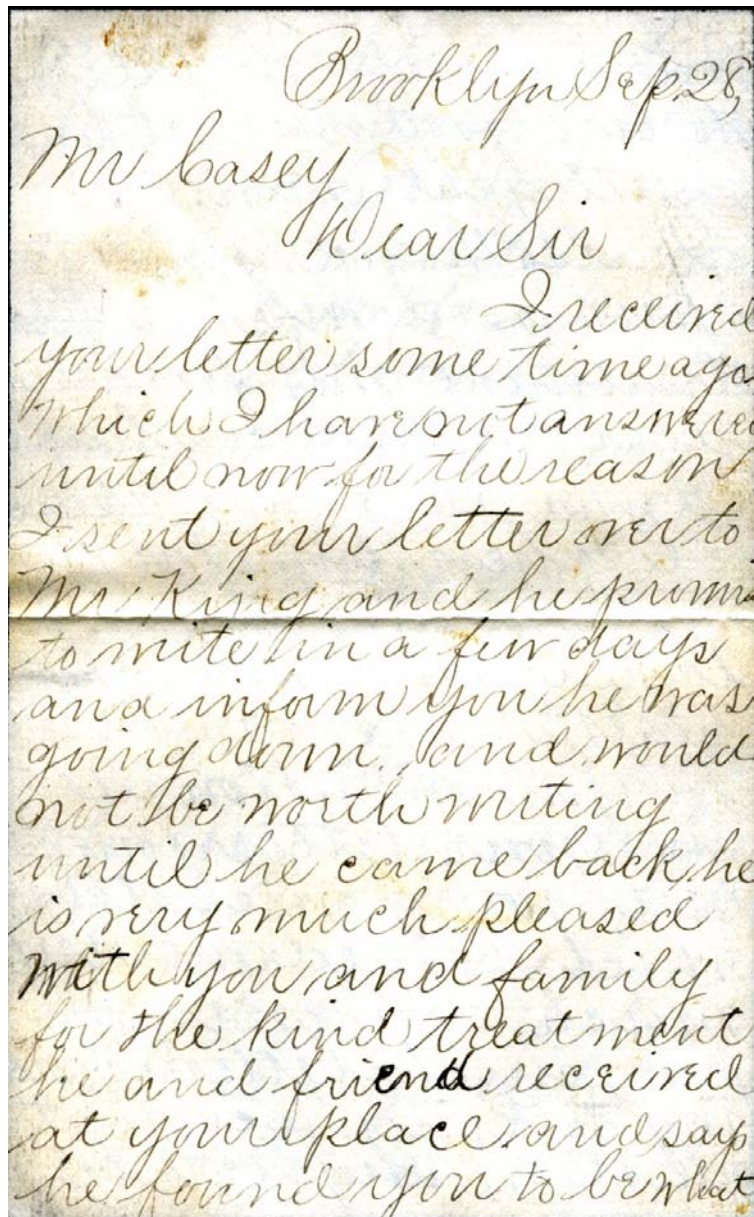 Brooklyn Sep. 28,
Mr Casey
Dear Sir
I received
your letter some time ago
which I have not answered
until now for the reason
I sent your letter over to
Mr King and he promis
to write in a few days
and inform you he was
going down, and would
not be worth writing
until he came back, he
is very much pleased
with you and family
for the kind treatment
he and friend received
at your place and says
he found you to be what